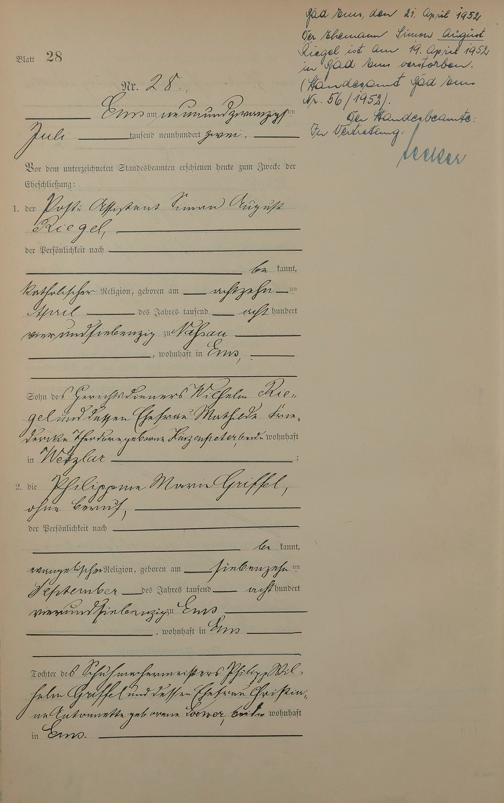 Bad Ems, den 21. April 1952
Der Ehemann Simon August
Riegel ist am 19. April 1952
in Bad Ems verstorben.
(Standesamt Bad Ems
Nr. 56/1952).
Der Standesbeamte:
In Vertretung:
Blatt 28
Nr. 28.
Ems am neunundzwanzigsten
Juli tausend neunhundert zwei.
Vor dem unterzeichneten Standesbeamten erschienen heute zum Zwecke der
Eheschließung:
1. der Post-Assistent Simon August
Riegel,
der Persönlichkeit nach
be kannt,
katholischer Religion, geboren am achtzehnten
April des Jahres tausend acht hundert
vierundsiebenzig zu Nassau
, wohnhaft in Ems,
Sohn des Gerichtsdieners Wilhelm Rie-
gel und dessen Ehefrau Mathilde Frie-
derike Theodore geborene beide wohnhaft
in Wetzlar ;
2. die Philippine Marie Griffel,
ohne Beruf,
der Persönlichkeit nach
be kannt,
evangelischer Religion, geboren am siebenzehnten
September des Jahres tausend acht hundert
vierundsiebenzig zu Ems
, wohnhaft in Ems
Tochter des Schuhmachermeisters Philipp Wil-
helm Griffel und dessen Ehefrau Christia-
ne Antonette geborene beide wohnhaft
in Ems.